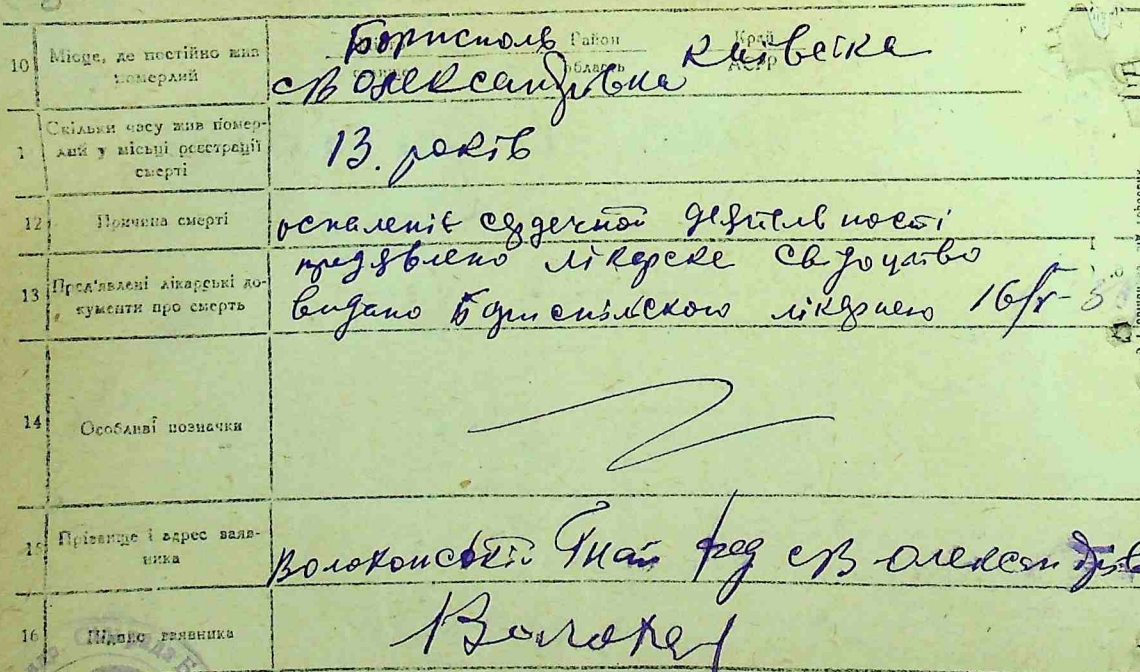 10 Місце, де постійно жив померлий
Район Край
область АССР
Бориспольв Київська
св Олександрівка
Скільки часу жив помер-
лий у місьці реєстрації
смерті
13. років
12 Причина смерті
ослаленіє сердечной деятельності
13 Пред'явлені лікарські до-
кументи про смерть
предявлено лікарске свідоцтво
видано Бориспільского лікарнею 16/V-3
14 Особливі позначки
15 Прізвище і адрес заяв-
ника
Волоконській Гнат с Олександрів
16 Підпис заявника
Волокон